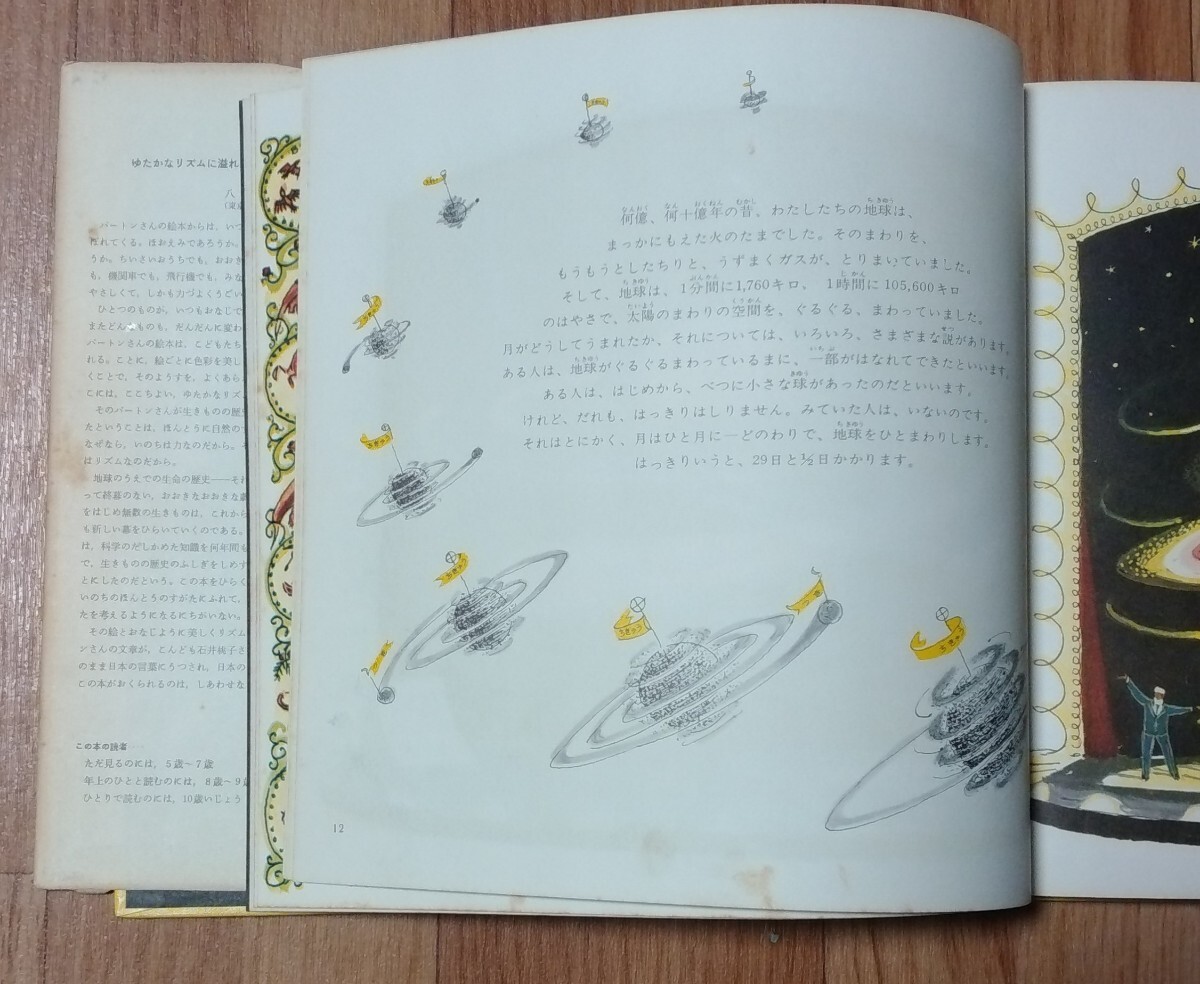 ゆたかなリズムに溢れ
八
(東
バートンさんの絵本からは、いつ
れてくる。ほおえみであろうか。
うか。ちいさいおうちでも、おおき
も。機関車でも。飛行機でも、みな
やさしくて、しかも力づよくうごい
ひとつのものが、いつもおなじで
またどんなものも、だんだんに変わ
バートンさんの絵本は、こどもたち
れる。ことに、絵ごとに色彩を美し
くことで、そのようすを、よくあら
こには、ここちよい、ゆたかなリズ
そのバートンさんが生きものの歴
たということは、ほんとうに自然の
なぜなら、いのちは力なのだから。そ
はリズムなのだから。
地球のうえでの生命の歴史——それ
って終幕のない、おおきなおおきな
をはじめ無数の生きものは、これから
も新しい幕をひらいていくのである。
は、科学のたしかめた知識を何年間も
で、生きものの歴史のふしぎをしめす
とにしたのだという。この本をひらく
いのちのほんとうのすがたにふれて、
たを考えるようになるにちがいない。
その絵とおなじように美しくリズム
ンさんの文章が、こんども石井桃子さ
のまま日本の言葉にうつされ、日本の
この本がおくられるのは、しあわせな
この本の読者……
ただ見るのには、5歳〜7歳
年上のひとと読むのには、8歳〜9歳
ひとりで読むのには、10歳いじょう
何億、何十億年の昔。わたしたちの地球は、
まっかにもえた火のたまでした。そのまわりを、
もうもうとしたちりと、うずまくガスが、とりまいていました。
そして、地球は、1分間に1,760キロ、1時間に105,600キロ
のはやさで、太陽のまわりの空間を、ぐるぐる、まわっていました。
月がどうしてうまれたか、それについては、いろいろ、さまざまな説があります。
ある人は、地球がぐるぐるまわっているまに、一部がはなれてできたといいます。
ある人は、はじめから、べつに小さな球があったのだといいます。
けれど、だれも、はっきりはしりません。みていた人は、いないのです。
それはとにかく、月はひと月に一どのわりで、地球をひとまわりします。
はっきりいうと、29日と½日かかります。
ちきゅう
ちきゅう
ちきゅう
つき
ちきゅう
つき
ちきゅう
12